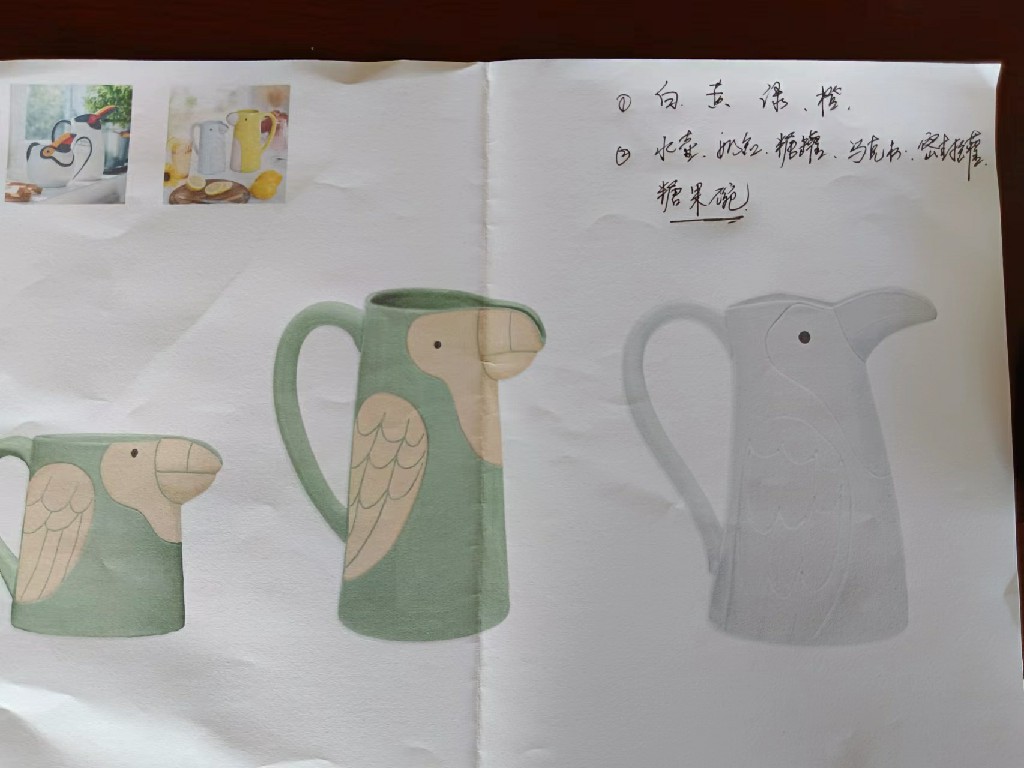 ① 白、黄、绿、橙.
② 水壶、奶缸、糖罐、马克杯、密封罐、
糖果碗